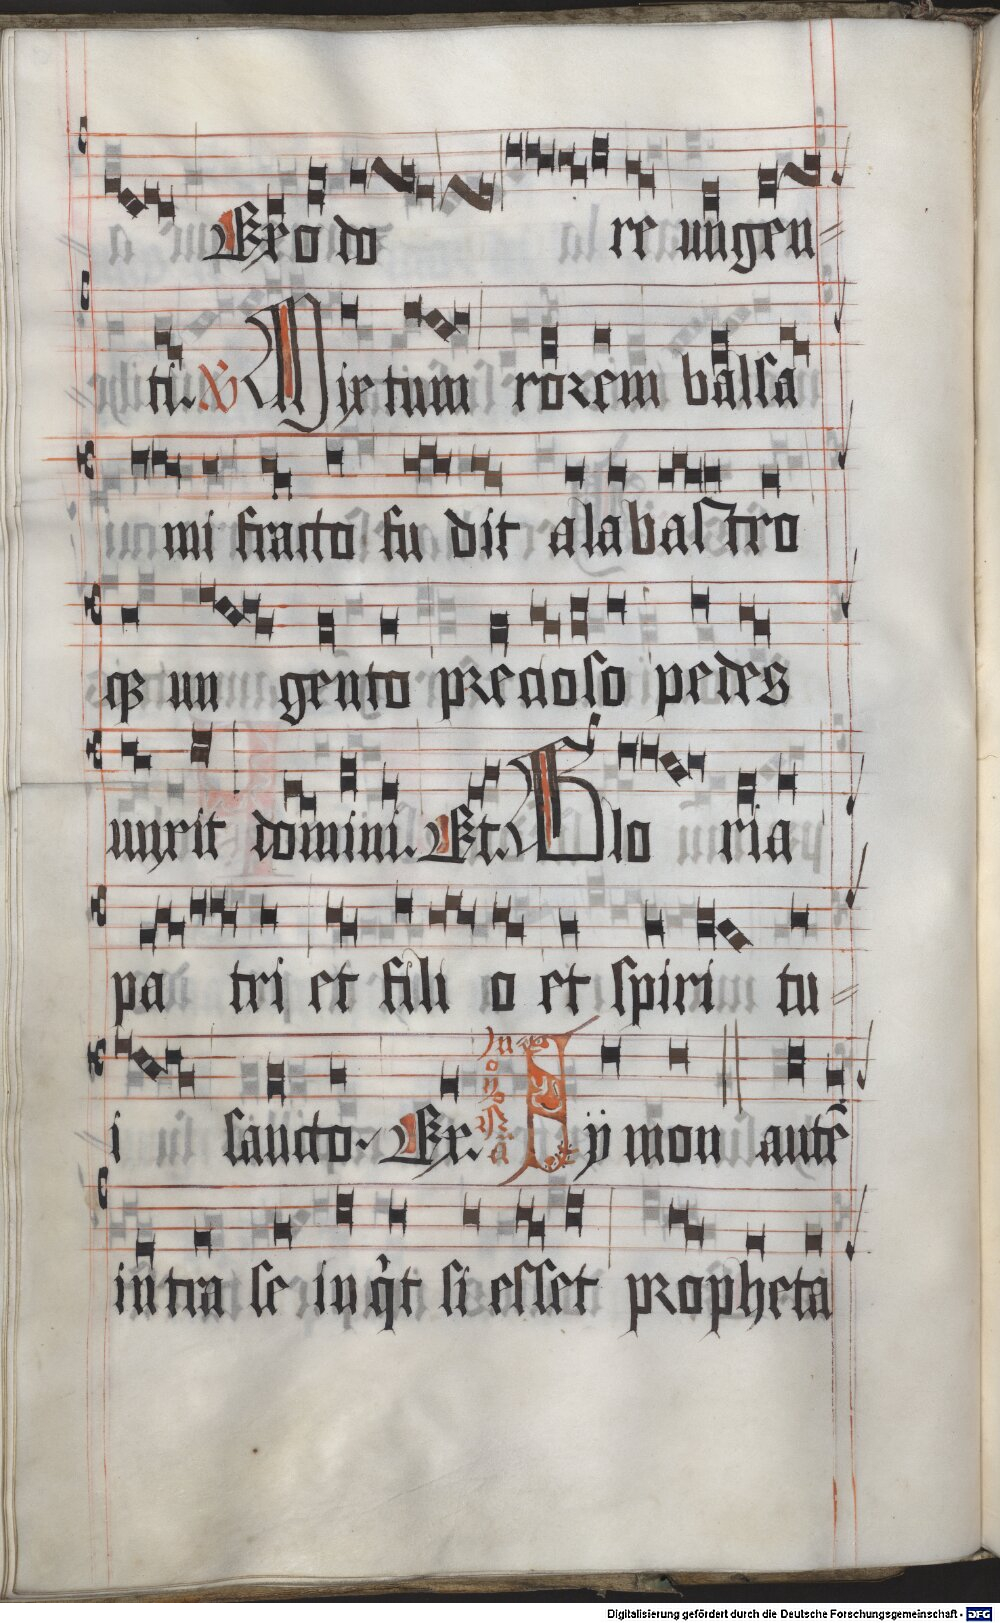 Ex o do re un gen
ti. ℣ Mixtum rorem balsa
mi fracto fu dit alabastro
qȝ un gento precioso pedes
unxit domini. Et. Glo ria
pa tri et fili o et spiri tu
i sancto. Ex. Sÿmon autē
intra se inq̇t si esset propheta
Digitalisierung gefördert durch die Deutsche Forschungsgemeinschaft - DFG